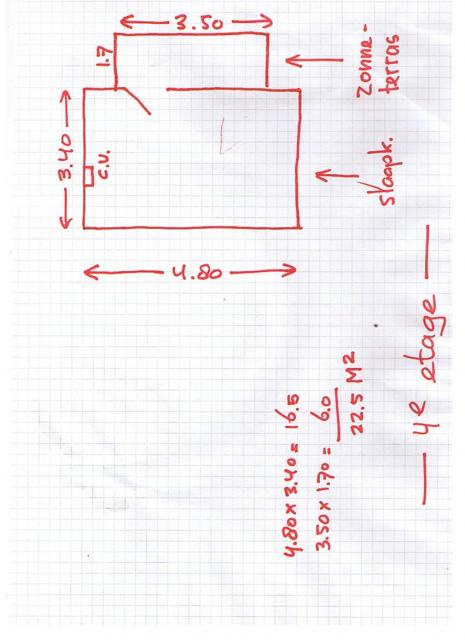 3.50
1.7
3.40
c.v.
4.80
Zonne-
terras
slaapk.
4.80 x 3.40 = 16.5
3.50 x 1.70 = 6.0
22.5 M2
— 4e etage —